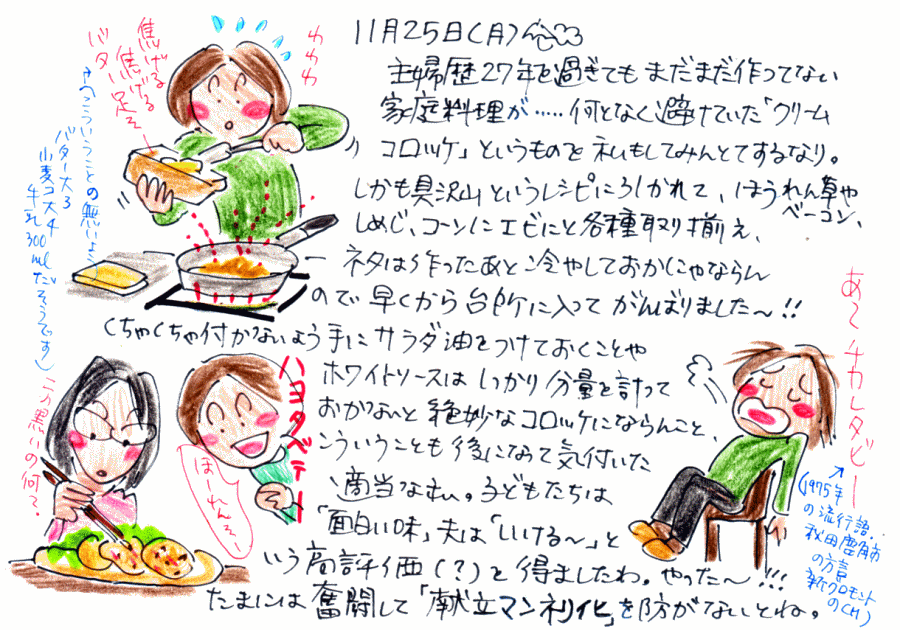 11月25日(月)
主婦歴27年を過ぎてもまだまだ作ってない
家庭料理が……何となく避けていた「クリーム
コロッケ」というものを私もしてみんとてするなり。
しかも具沢山というレシピにひかれて、ほうれん草や
ベーコン、
しめじ、コーンにエビにと各種取り揃え、
ネタは作ったあと冷やしておかにゃならん
ので早くから台所に入ってがんばりました〜!!
くちゃくちゃ付かないよう手にサラダ油をつけておくことや
ホワイトソースはしっかり分量を計って
おかないと絶妙なコロッケにならんこと、
こういうことも後になって気付いた
適当なむい。子どもたちは
「面白い味」夫は「いける〜」と
いう高評価(?)を得ましたわ。やった〜!!!
たまには奮闘して「献立マンネリ化」を防がないとね。
わわわ
焦げる
焦げる
バター足そ
(こういうことの無いよう
バター大3
小麦コ大4
牛乳300mlだそうです)
この黒いの何?
ハヨタベテー
ほーれんそー
あ〜チカレタビー
(1975年
の流行語‥
秋田鹿角市
の方言
新グロモント
のCM)